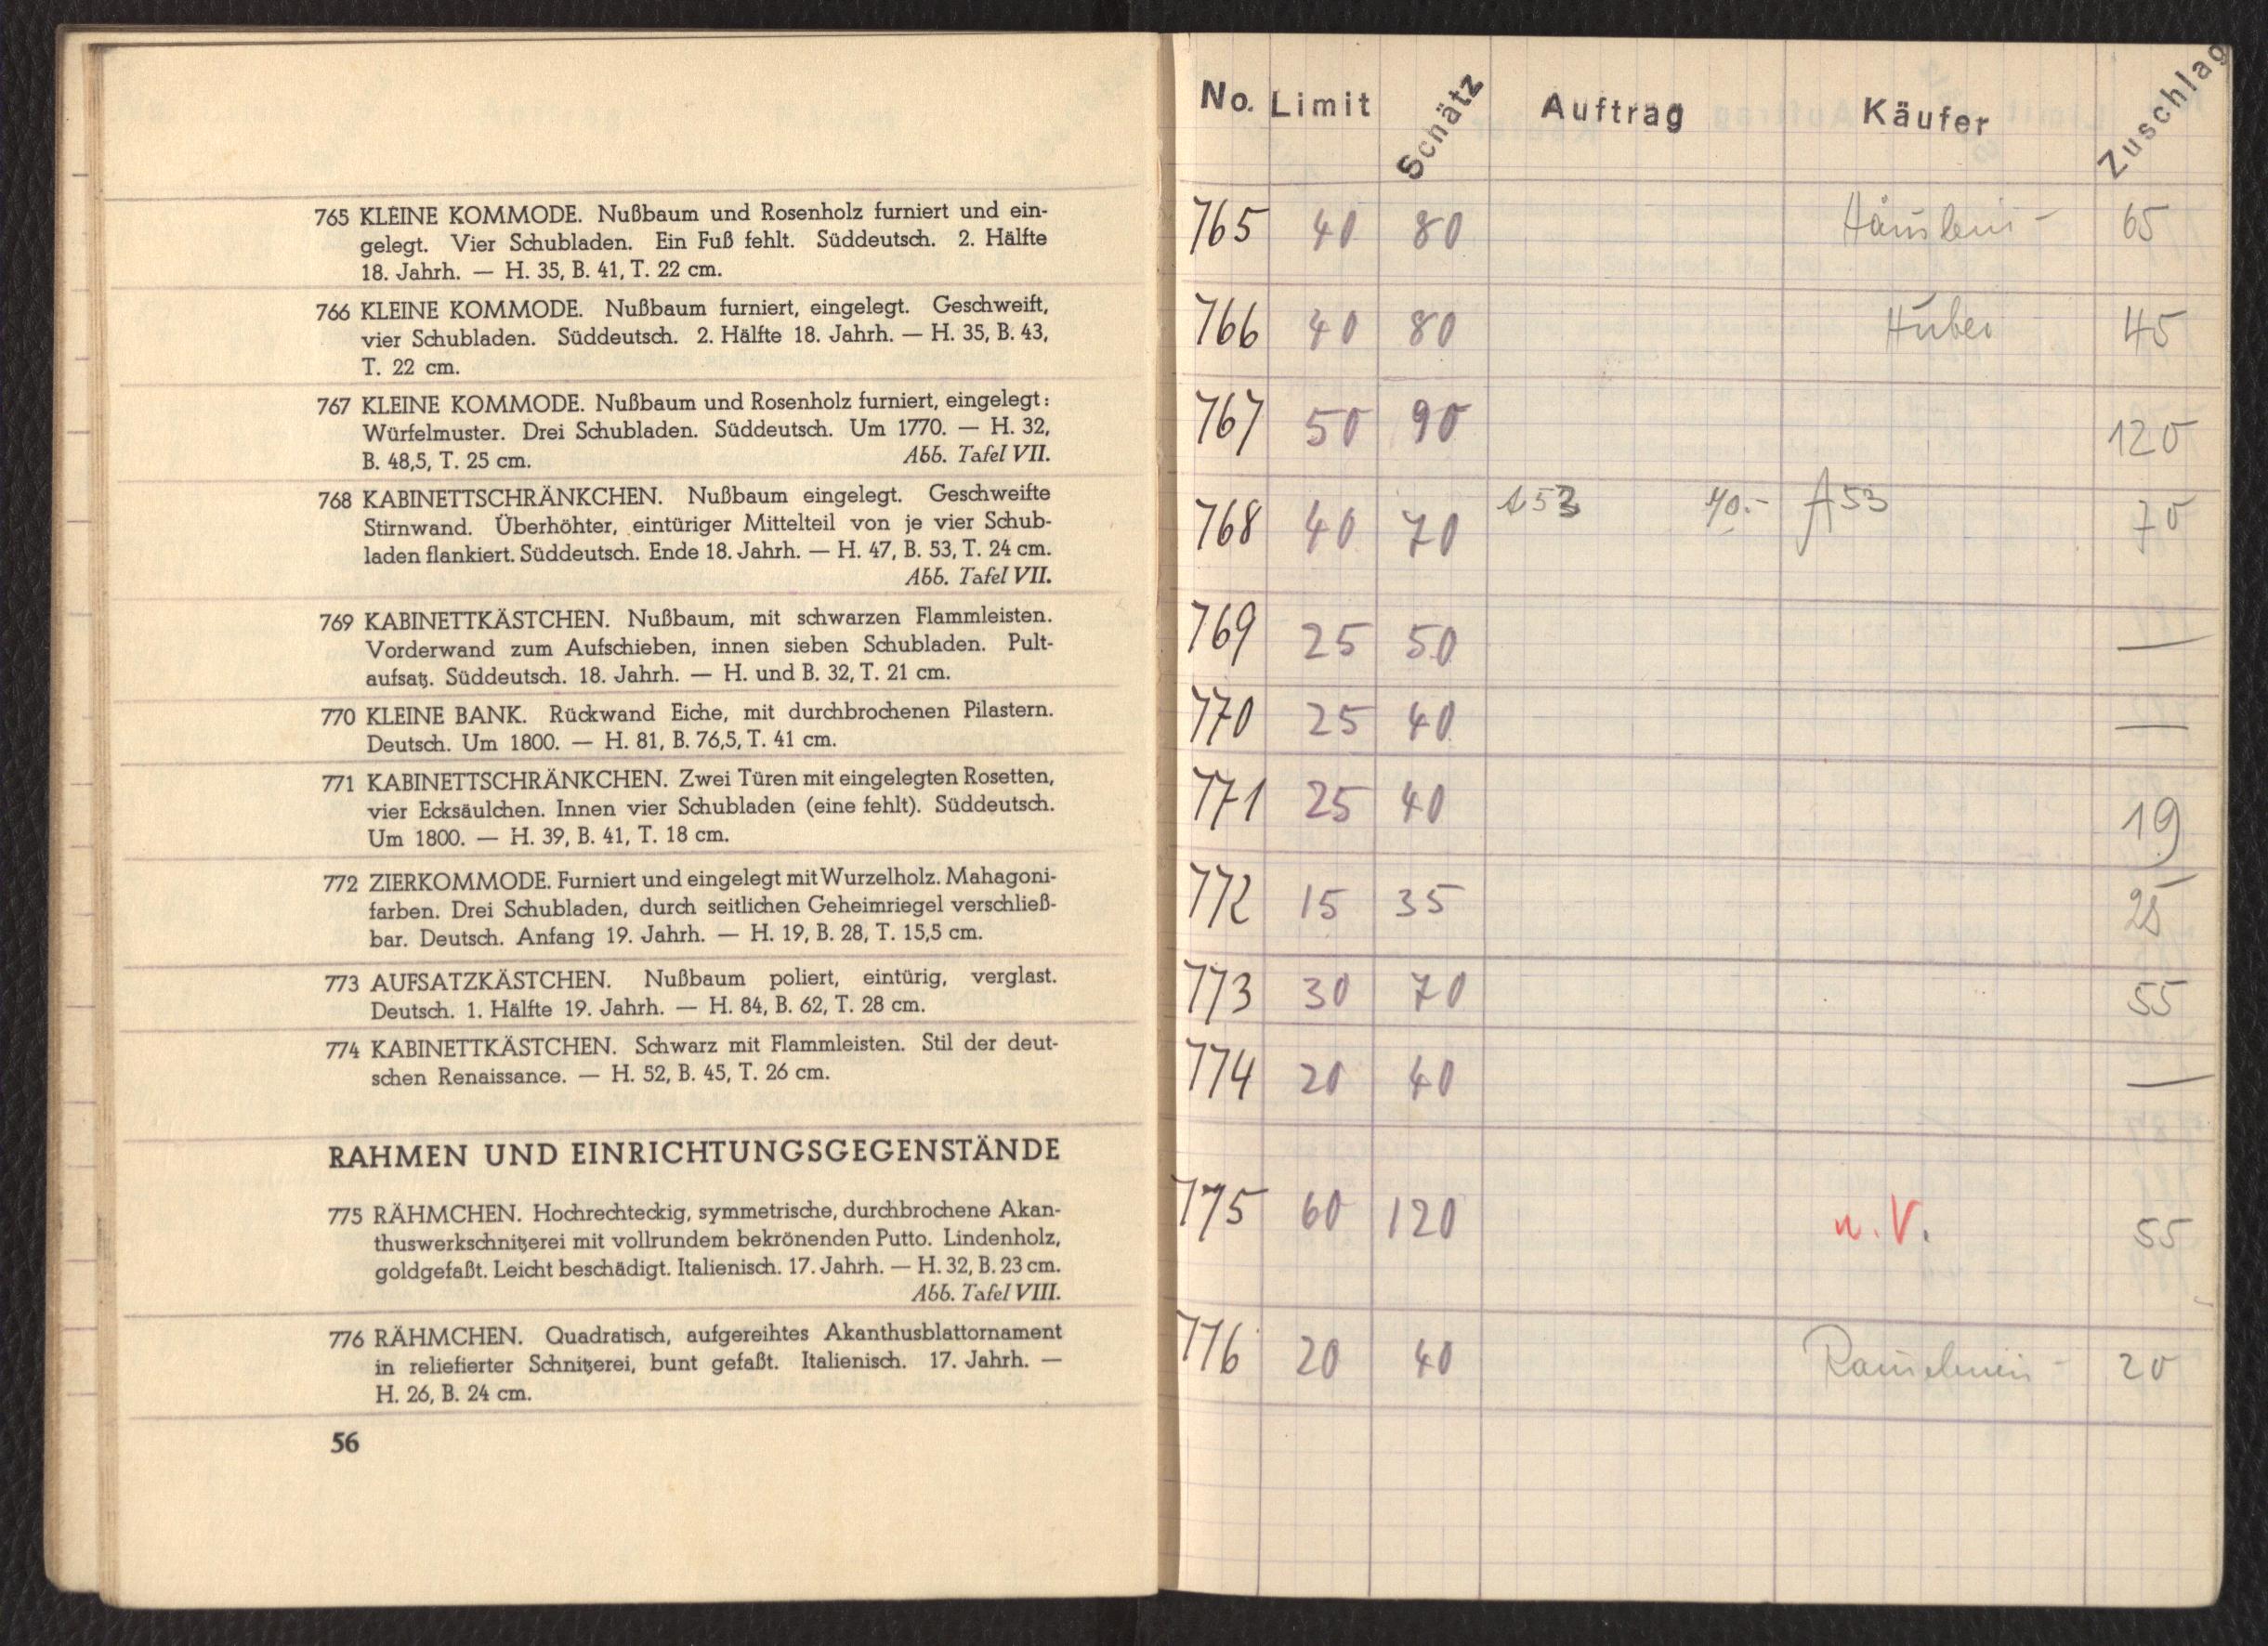 765 KLEINE KOMMODE. Nußbaum und Rosenholz furniert und ein-
gelegt. Vier Schubladen. Ein Fuß fehlt. Süddeutsch. 2. Hälfte
18. Jahrh. — H. 35, B. 41, T. 22 cm.
766 KLEINE KOMMODE. Nußbaum furniert, eingelegt. Geschweift,
vier Schubladen. Süddeutsch. 2. Hälfte 18. Jahrh. — H. 35, B. 43,
T. 22 cm.
767 KLEINE KOMMODE. Nußbaum und Rosenholz furniert, eingelegt:
Würfelmuster. Drei Schubladen. Süddeutsch. Um 1770. — H. 32,
B. 48,5, T. 25 cm. Abb. Tafel VII.
768 KABINETTSCHRÄNKCHEN. Nußbaum eingelegt. Geschweifte
Stirnwand. Überhöhter, eintüriger Mittelteil von je vier Schub-
laden flankiert. Süddeutsch. Ende 18. Jahrh. — H. 47, B. 53, T. 24 cm.
Abb. Tafel VII.
769 KABINETTKÄSTCHEN. Nußbaum, mit schwarzen Flammleisten.
Vorderwand zum Aufschieben, innen sieben Schubladen. Pult-
aufsatz. Süddeutsch. 18. Jahrh. — H. und B. 32, T. 21 cm.
770 KLEINE BANK. Rückwand Eiche, mit durchbrochenen Pilastern.
Deutsch. Um 1800. — H. 81, B. 76,5, T. 41 cm.
771 KABINETTSCHRÄNKCHEN. Zwei Türen mit eingelegten Rosetten,
vier Ecksäulchen. Innen vier Schubladen (eine fehlt). Süddeutsch.
Um 1800. — H. 39, B. 41, T. 18 cm.
772 ZIERKOMMODE. Furniert und eingelegt mit Wurzelholz. Mahagoni-
farben. Drei Schubladen, durch seitlichen Geheimriegel verschließ-
bar. Deutsch. Anfang 19. Jahrh. — H. 19, B. 28, T. 15,5 cm.
773 AUFSATZKÄSTCHEN. Nußbaum poliert, eintürig, verglast.
Deutsch. 1. Hälfte 19. Jahrh. — H. 84, B. 62, T. 28 cm.
774 KABINETTKÄSTCHEN. Schwarz mit Flammleisten. Stil der deut-
schen Renaissance. — H. 52, B. 45, T. 26 cm.
RAHMEN UND EINRICHTUNGSGEGENSTÄNDE
775 RÄHMCHEN. Hochrechteckig, symmetrische, durchbrochene Akan-
thuswerkschnitzerei mit vollrundem bekrönenden Putto. Lindenholz,
goldgefaßt. Leicht beschädigt. Italienisch. 17. Jahrh. — H. 32, B. 23 cm.
Abb. Tafel VIII.
776 RÄHMCHEN. Quadratisch, aufgereihtes Akanthusblattornament
in reliefierter Schnitzerei, bunt gefaßt. Italienisch. 17. Jahrh. —
H. 26, B. 24 cm.
56
No. Limit Schätz Auftrag Käufer Zuschlag
765 40 80 65
766 40 80 Huber 45
767 50 90 120
768 40 70 A53 40.- A53 70
769 25 50 —
770 25 40 —
771 25 40 19
772 15 35 25
773 30 70 55
774 20 40 —
775 60 120 n. V. 55
776 20 40 20